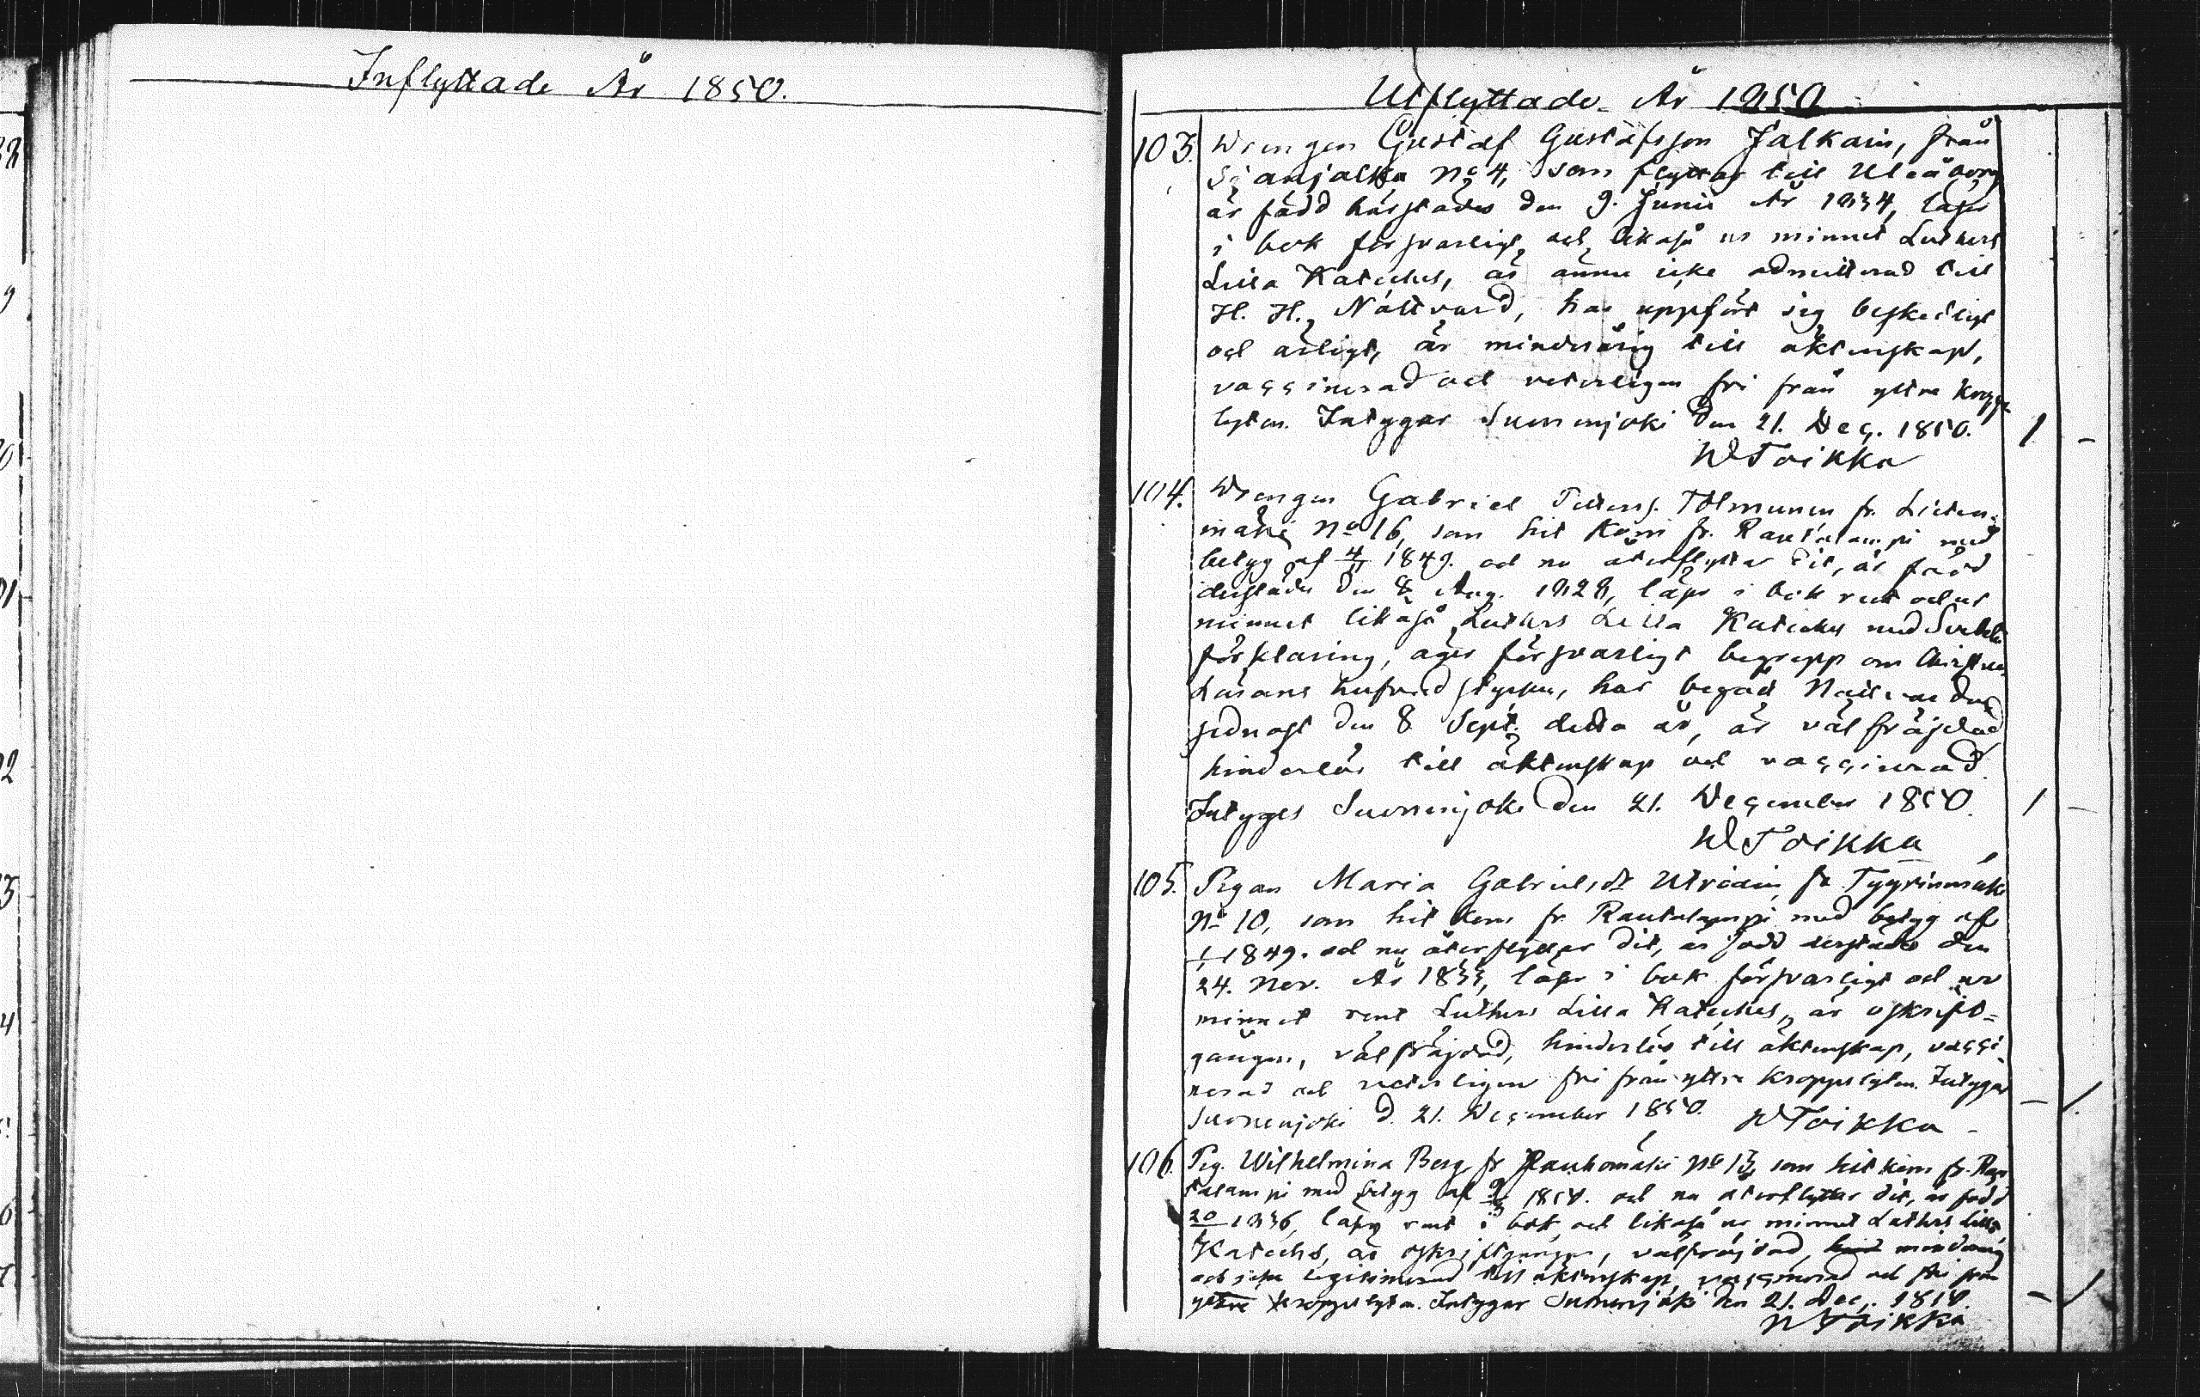 Inflyttade År 1850.
Utflyttade År 1850
103. Drengen Gustaf Gustafsson Jalkain, från
Sianjalka No 4, som flyttar till Uleåborg
är född härstädes den 9. Junii År 1834, läser
i bok försvarligt, och likaså ur minnet Luthers
Lilla Kateches, är ännu icke admitterad till
H. H. Nattvard, har uppfört sig beskedligt
och ärligt, är minderårig till äktenskap,
vaccinerad och veterligen fri från yttre kropps
lyten. Intygar Suonenjoki den 21. Dec. 1850. 1 -
W Toikka
104. Drengen Gabriel Petterss. Tolmunen fr.
mäki No 16, som hit kom fr. Rautalampi med
betyg af 1849. och nu återflyttar dit, är född
derstädes den 8 Aug. 1828, läser i bok rent och ur
minnet likaså Luthers Lilla Kateches med Svebelii
förklaring, äger försvarligt begrepp om Christna
Lärans hufvudstycken, har begått Nattvarden
sednast den 8 Sept. detta år, är välfräjdad
hinderlös till äktenskap och vaccinerad.
Intyges Suonenjoki den 21. December 1850. 1 -
W Toikka
105. Pigan Maria Gabrielsdr Utriain fr Tyyrinmäki
No 10, som hit kom fr. Rautalampi med betyg af
1849. och nu återflyttar dit, är född derstädes den
24. Nov. År 1833, läser i bok försvarligt och ur
minnet rent Luthers Lilla Kateches, är oskrift=
gången, välfräjdad, hinderlös till äktenskap, vacci
nerad och veterligen fri från yttre kroppslyten. Intygar
Suonenjoki d. 21. December 1850. W Toikka - 1.
106. Pig. Wilhelmina Berg fr Rauhamäki No 13, som hit kom fr. Rau
talampi med betyg af 1850. och nu återflyttar dit, är född
1836, läser rent i bok, och likaså ur minnet Luthers Lilla
Kateches, är oskriftgången, välfräjdad, minderårig
och icke legitimerad till äktenskap, vaccinerad och fri från
yttre kroppslyten. Intygar Suonenjoki den 21. Dec. 1850. - 1
W Toikka